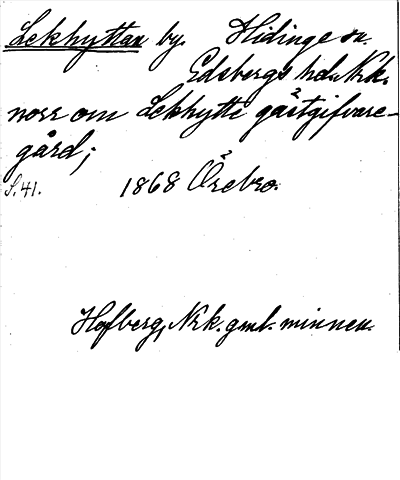 Lekhyttan by. Hidinge sn.
Edsbergs hd. Nrk.
norr om Lekhytte gästgifvare-
gård;
S. 41. 1868 Örebro.
Hofberg, Nrk. gml. minnen.